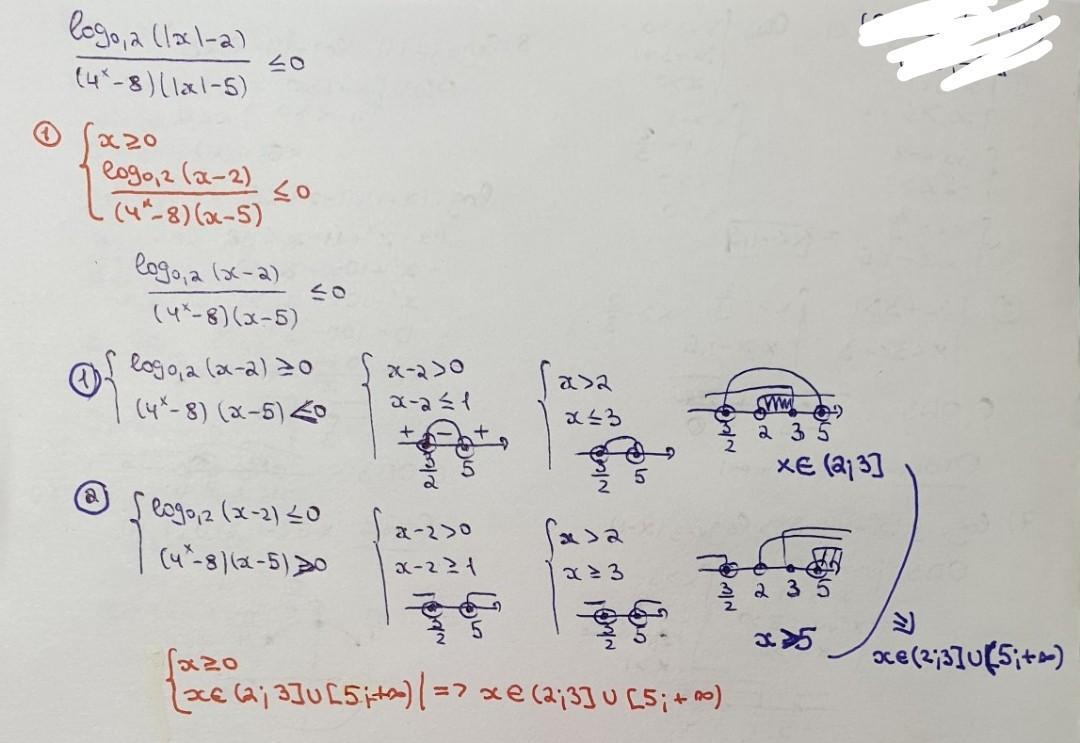 log₀,₂(|x|-2)
(4ˣ-8)(|x|-5) ≤0
① { x≥0
log₀,₂(x-2)
(4ˣ-8)(x-5) ≤0
log₀,₂(x-2)
(4ˣ-8)(x-5) ≤0
① { log₀,₂(x-2)≥0
(4ˣ-8)(x-5)<0
{ x-2>0
x-2≤1
+ - +
3/2 5
{ x>2
x≤3
3/2 5
3/2 2 3 5
x∈(2;3]
② { log₀,₂(x-2)≤0
(4ˣ-8)(x-5)>0
{ x-2>0
x-2≥1
3/2 5
{ x>2
x≥3
3/2 5
3/2 2 3 5
x>5
⇒
x∈(2;3]∪(5;+∞)
{ x≥0
x∈(2;3]∪[5;+∞) | => x∈(2;3]∪[5;+∞)